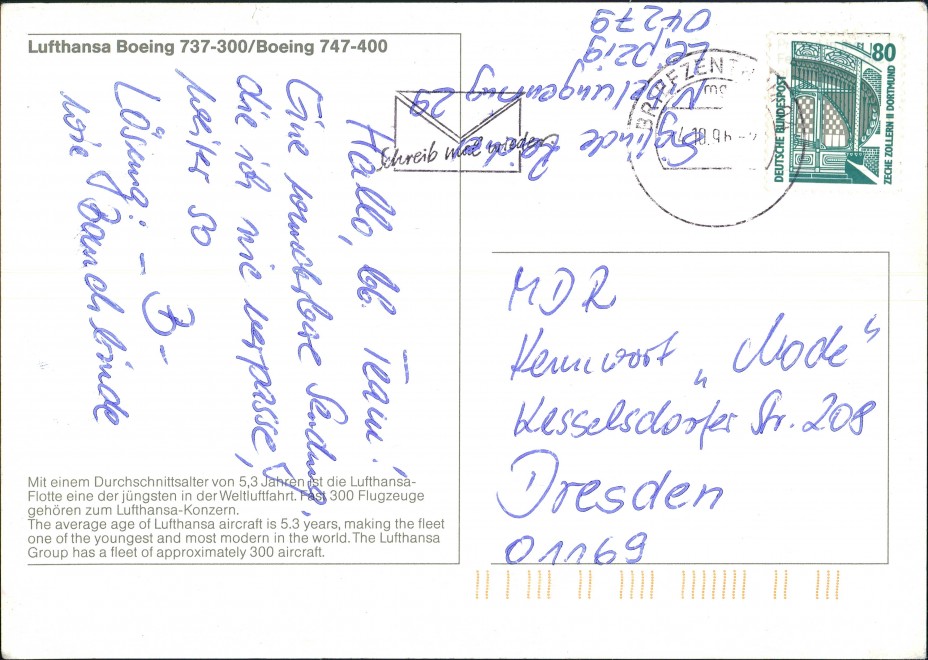 Lufthansa Boeing 737-300/Boeing 747-400
Hallo, lb. Team!
Eine wunderbare Sendung,
die ich nie verpasse,
weiter so
Lösung: - B -
wie Bauchbinde
Mit einem Durchschnittsalter von 5,3 Jahren ist die Lufthansa-
Flotte eine der jüngsten in der Weltluftfahrt. Fast 300 Flugzeuge
gehören zum Lufthansa-Konzern.
The average age of Lufthansa aircraft is 5.3 years, making the fleet
one of the youngest and most modern in the world. The Lufthansa
Group has a fleet of approximately 300 aircraft.
Nibelungenring 29
Leipzig
04279
Schreib mal wieder
BRIEFZENTRUM
80
DEUTSCHE BUNDESPOST
ZECHE ZOLLERN II DORTMUND
MDR
Kennwort „Mode“
Kesselsdorfer Str. 208
Dresden
01169